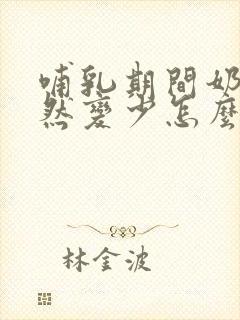 哺乳期間奶
然變少怎麼
林金波